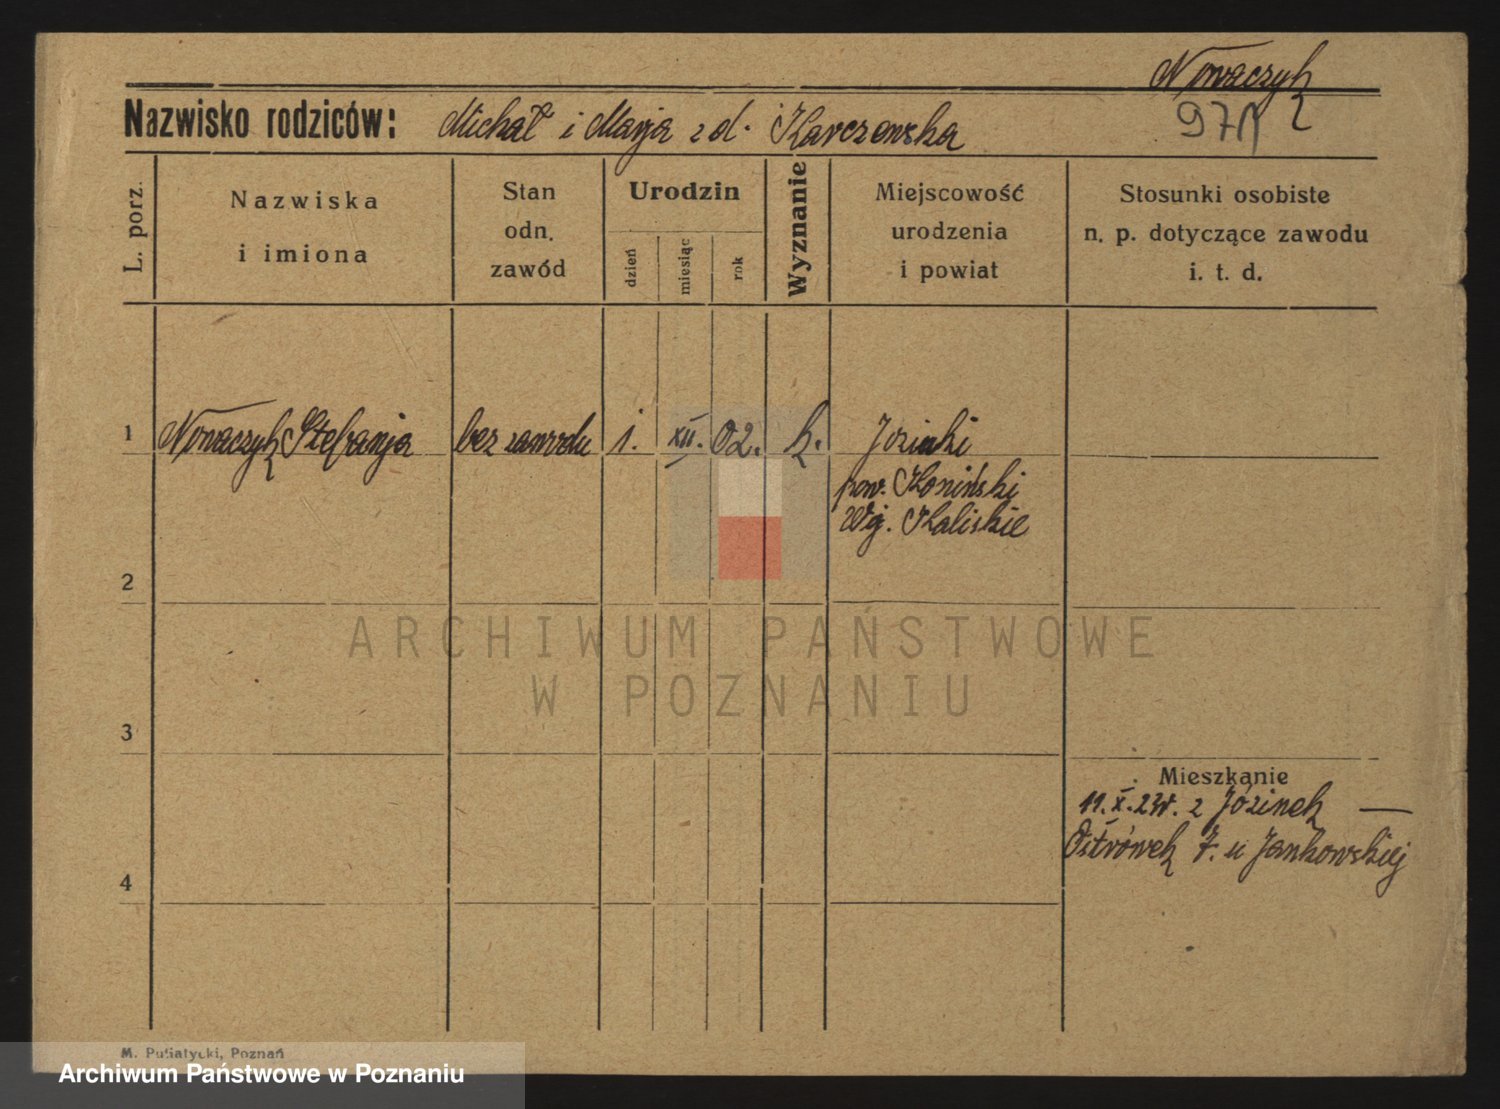 Nowaczyk
971
Nazwisko rodziców: Michał i Marja z d. Karczewska
L. porz.
Nazwiska
i imiona
Stan
odn.
zawód
Urodzin
dzień
miesiąc
rok
Wyznanie
Miejscowość
urodzenia
i powiat
Stosunki osobiste
n. p. dotyczące zawodu
i. t. d.
1 Nowaczyk Stefanja bez zawodu 1. XII. 02. k. Józinki
pow. Koniński
Wj. Kaliskie
2
ARCHIWUM PAŃSTWOWE
W POZNANIU
3
Mieszkanie
11. X. 23r. z Józinek —
Ostrówek 7. u Jankowskiej
4
M. Putiatycki, Poznań
Archiwum Państwowe w Poznaniu